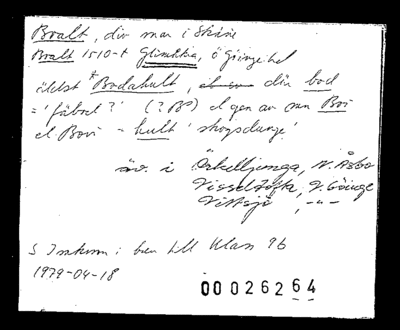 Bralt, div mar i Skåne
Bralt 1510-t Glimåkra, ö Göinge hd
äldst *Bodahult, där bod
= 'fäbod?' (? B°) el gen av mn Boi
el Bovi - hult 'skogsdunge'
äv. i Örkelljunga, N. Åsbo
Visseltofta, V. Göinge
Vittsjö, -"-
S Inskom i brev till Klas 96
1979-04-18
00026264